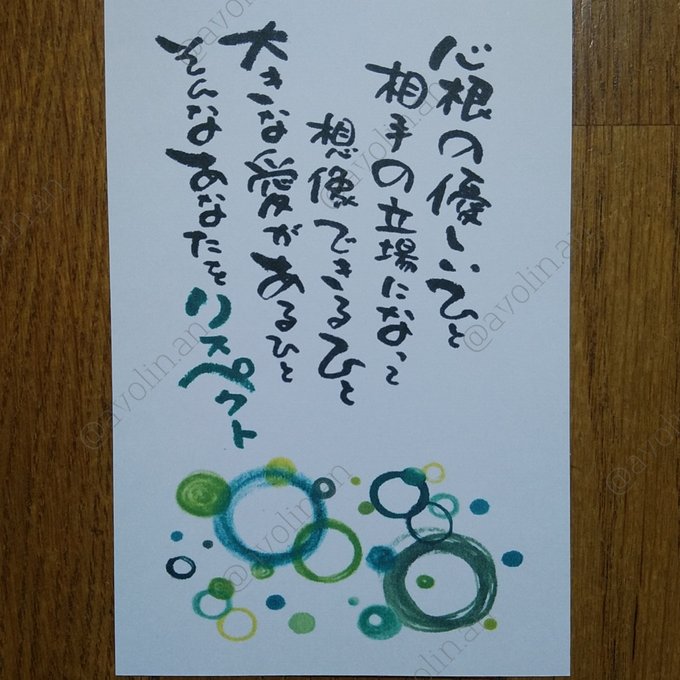 心根の優しいひと
相手の立場になって
想像できるひと
大きな愛があるひと
そんなあなたを
リスペクト
@avolin.an